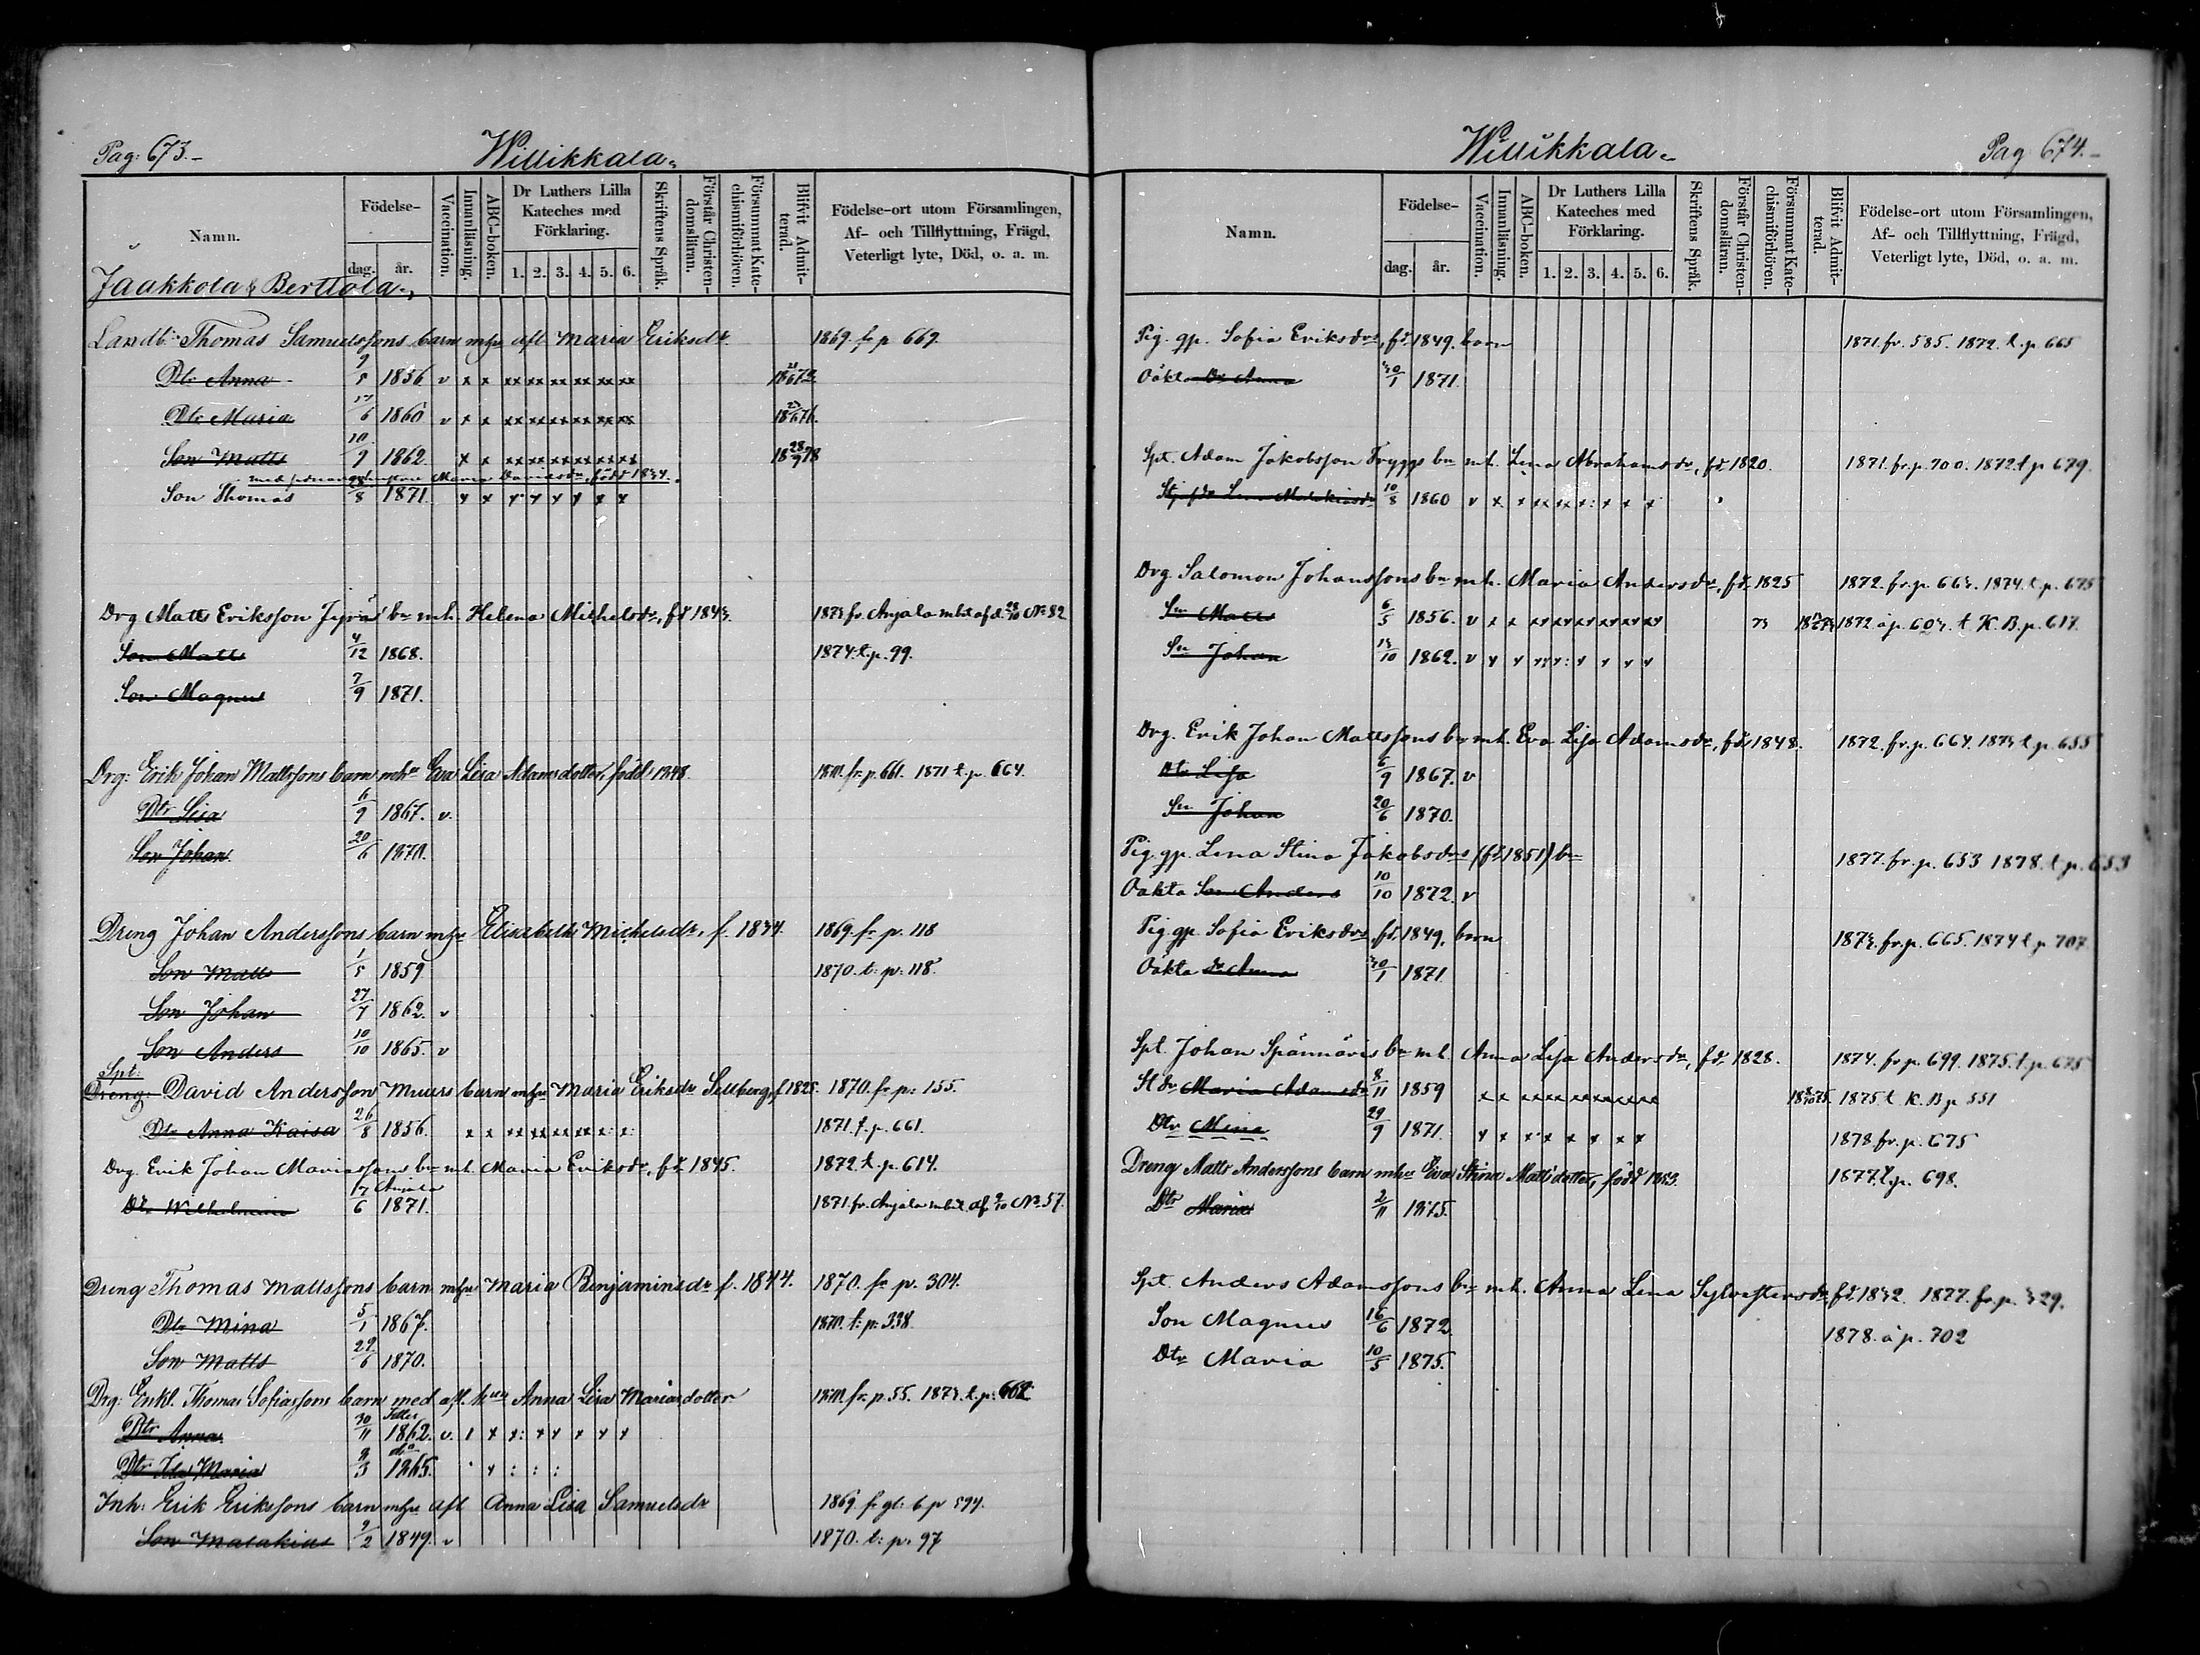 Pag: 673.-
Willikkala.
Namn.
Födelse-
dag.
år.
Vaccination.
Innanläsning.
ABC-boken.
Dr Luthers Lilla Kateches med Förklaring.
1. 2. 3. 4. 5. 6.
Skriftens Språk.
Förstår Christendomsläran.
Försummat Katechismiförhören.
Blifvit Admitterad.
Födelse-ort utom Församlingen, Af- och Tillflyttning, Frägd, Veterligt lyte, Död, o. a. m.
Jaakkola & Berttola.
Landb: Thomas Samuelssons barn mhu afl Maria Eriksdr. 1869. fr p 669.
Dtr Anna 9/5 1856 v x x xx xx xx xx xx xx
Dtr Maria 17/6 1860 v x x xx xx xx xx xx xx
Son Matts 10/9 1862. x x xx xx xx xx xx xx 18 28/9 78
Maria Davidsdr, född 1834.
Son Thomas 28/8 1871. x x x x x x x x
Drg Matts Eriksson bn mh. Helena Michelsdr, fd 1843. 1873 fr. Anjala mbt af d. 28/10 No 82
Son Matts 4/12 1868. 1874. t. p. 99.
Son Magnus 7/9 1871.
Drg: Erik Johan Mattssons barn mhu Eva Lisa Adamsdotter, född 1848. 1870. fr. p. 661. 1871 t. p. 664.
Dtr Lisa 6/9 1867. v.
Son Johan 20/6 1870.
Dreng Johan Anderssons barn mhu Elisabeth Michelsdr, f. 1834. 1869. fr p. 118
Son Matts 1/5 1859 1870. t: p: 118.
Son Johan 27/4 1862. v
Son Anders 10/10 1865. v
Spt:
Dreng: David Andersson Muurs barn mhu Maria Eriksdr Sellberg, f 1825. 1870. fr p: 155.
Dtr Anna Kaisa 26/8 1856. x x xx xx xx xx x: x: 1871. t. p. 661.
Drg. Erik Johan Mariassons bn mh. Maria Eriksdr, fd. 1845. 1872. t. p. 614.
Dr Wilhelmina 17/6 Anjala 1871. 1871. fr. Anjala mbt af 2/10 No 57.
Dreng Thomas Mattssons barn mhu Maria Benjaminsdr f. 1844. 1870. fr p. 304.
Dtr Mina 5/1 1867. 1870. t: p: 338.
Son Matts 29/6 1870.
Drg: Enkl. Thomas Sofiassons barn med afl. hun Anna Lisa Mariasdotter 1870. fr. p. 55. 1873. t. p. 662
Dtr Anna 30/11 1862. v. x x: x x x x x
Dtr Ida Maria 9/3 do 1865.
Inh: Erik Erikssons barn mhu afl Anna Lisa Samuelsdr 1869. fr gl: b p 594.
Son Malakias 9/2 1849. v 1870. t: p: 97
Willikkala.
Pag 674.-
Namn.
Födelse-
dag.
år.
Vaccination.
Innanläsning.
ABC-boken.
Dr Luthers Lilla Kateches med Förklaring.
1. 2. 3. 4. 5. 6.
Skriftens Språk.
Förstår Christendomsläran.
Försummat Katechismiförhören.
Blifvit Admitterad.
Födelse-ort utom Församlingen, Af- och Tillflyttning, Frägd, Veterligt lyte, Död, o. a. m.
Pig. gp. Sofia Eriksdrs, fd. 1849. barn 1871. fr. 585. 1872. t. p 665
Oäkta dr Anna 30/1 1871.
Spt. Adam Jakobsson Tryggs bn mh. Lena Abrahamsdr, fd. 1820. 1871. fr. p. 700. 1872. t p 679.
Stjfdr Lena Malakiasdr 10/8 1860 v x x xx xx x: x x x
Drg Salomon Johanssons bn mh. Maria Andersdr, fd. 1825 1872. fr. p. 663. 1874. t. p. 675
Sn Matts 6/5 1856. v x x xx xx xx xx xx xx 73 1872 å p. 603. t. K. B. p. 617.
Sn Johan 13/10 1862. v x x
Drg. Erik Johan Mattssons bn mh. Eva Lisa Adamsdr, fd. 1848. 1872. fr. p. 664. 1873 t. p. 655
Dtr Lisa 6/9 1867. v
Sn Johan 20/6 1870.
Pig. gp. Lena Stina Jakobsdrs (fd. 1851) bn 1877. fr. p. 653 1878. t. p. 653
Oäkta Son Anders 10/10 1872. v
Pig. gp Sofia Eriksdrs, fd. 1849, barn 1873. fr. p. 665. 1874 t. p. 707
Oäkta dr Anna 30/1 1871
Spt. Johan Spännäris bn mh. Anna Lisa Andersdr, fd. 1828. 1874. fr. p. 699. 1875. t. p. 675
St dr Maria Adamsdr 8/11 1859 x x xx xx xx xx xx xx 1875 t K. B p. 551
Dtr Mina 29/9 1871. x x x x x x x x 1878 fr. p. 675
Dreng Matts Anderssons barn mhu Eva Stina Mattsdotter, född 1853. 1877. t. p. 698.
Dtr Maria 2/11 1875.
Spt. Anders Adamssons bn mh. Anna Lena Sylvestersdr, fd. 1832. 1877. fr. p. 329.
Son Magnus 16/6 1872. 1878. å p. 702
Dtr Maria 10/5 1875.